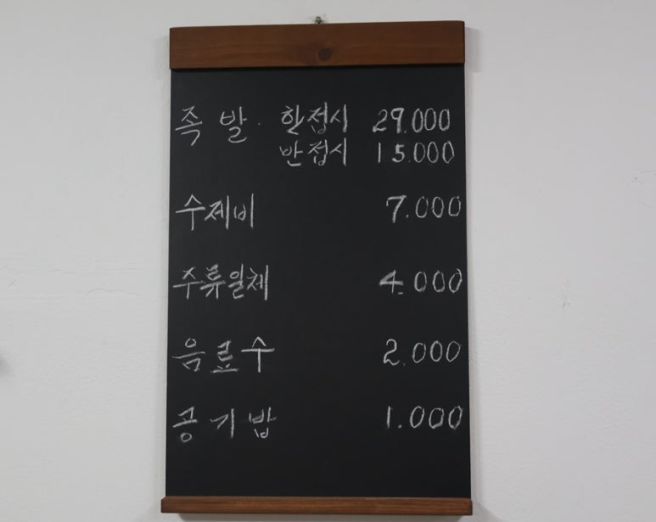 족 발 한접시 29.000
반접시 15.000
수제비 7.000
주류일체 4.000
음료수 2.000
공기밥 1.000